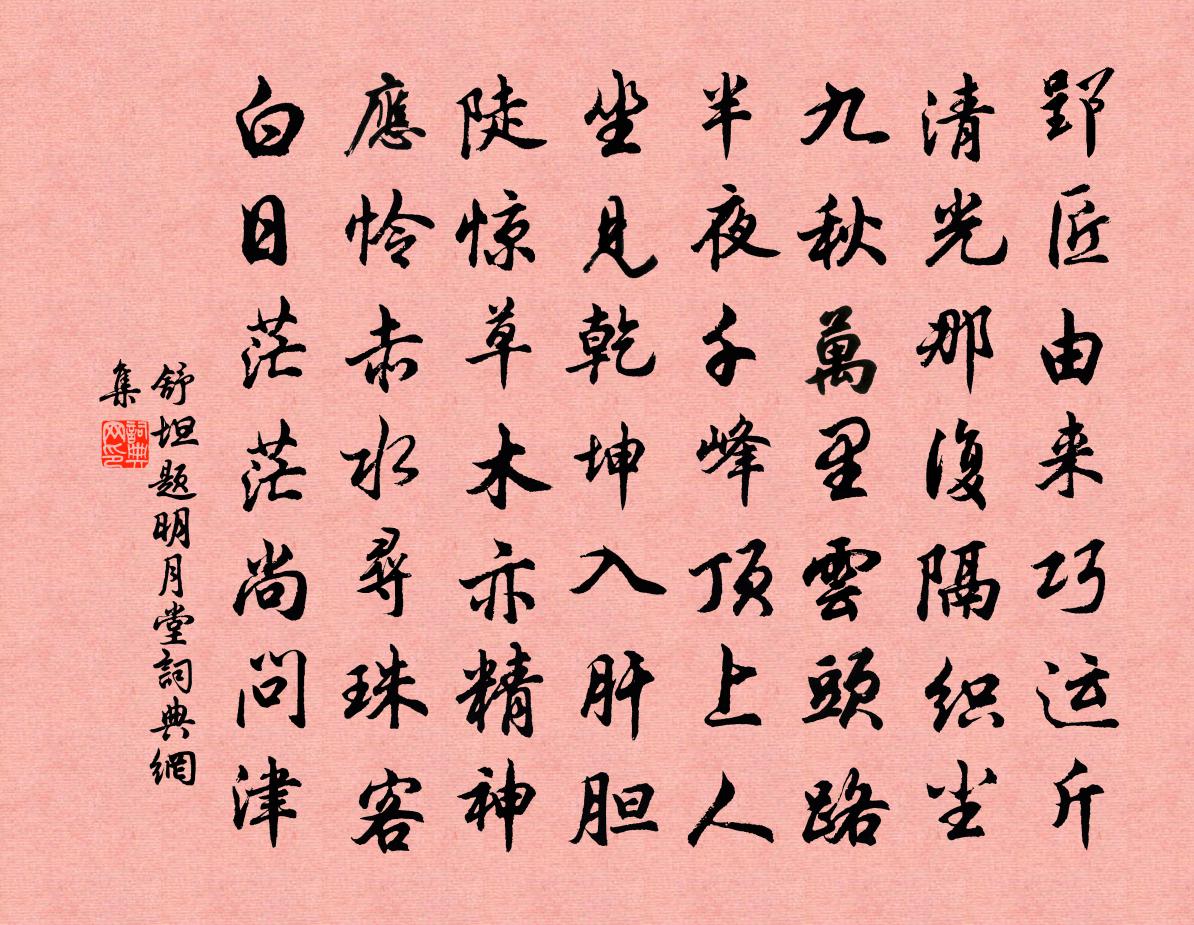 郢匠由来巧运斤
清光那復隔织尘
九秋萬里雲頭路
半夜千峰顶上人
坐見乾坤入肝胆
陡惊草木亦精神
應怜赤水尋珠客
白日茫茫尚问津
舒坦题明月堂詞典網
集
詞典
网印